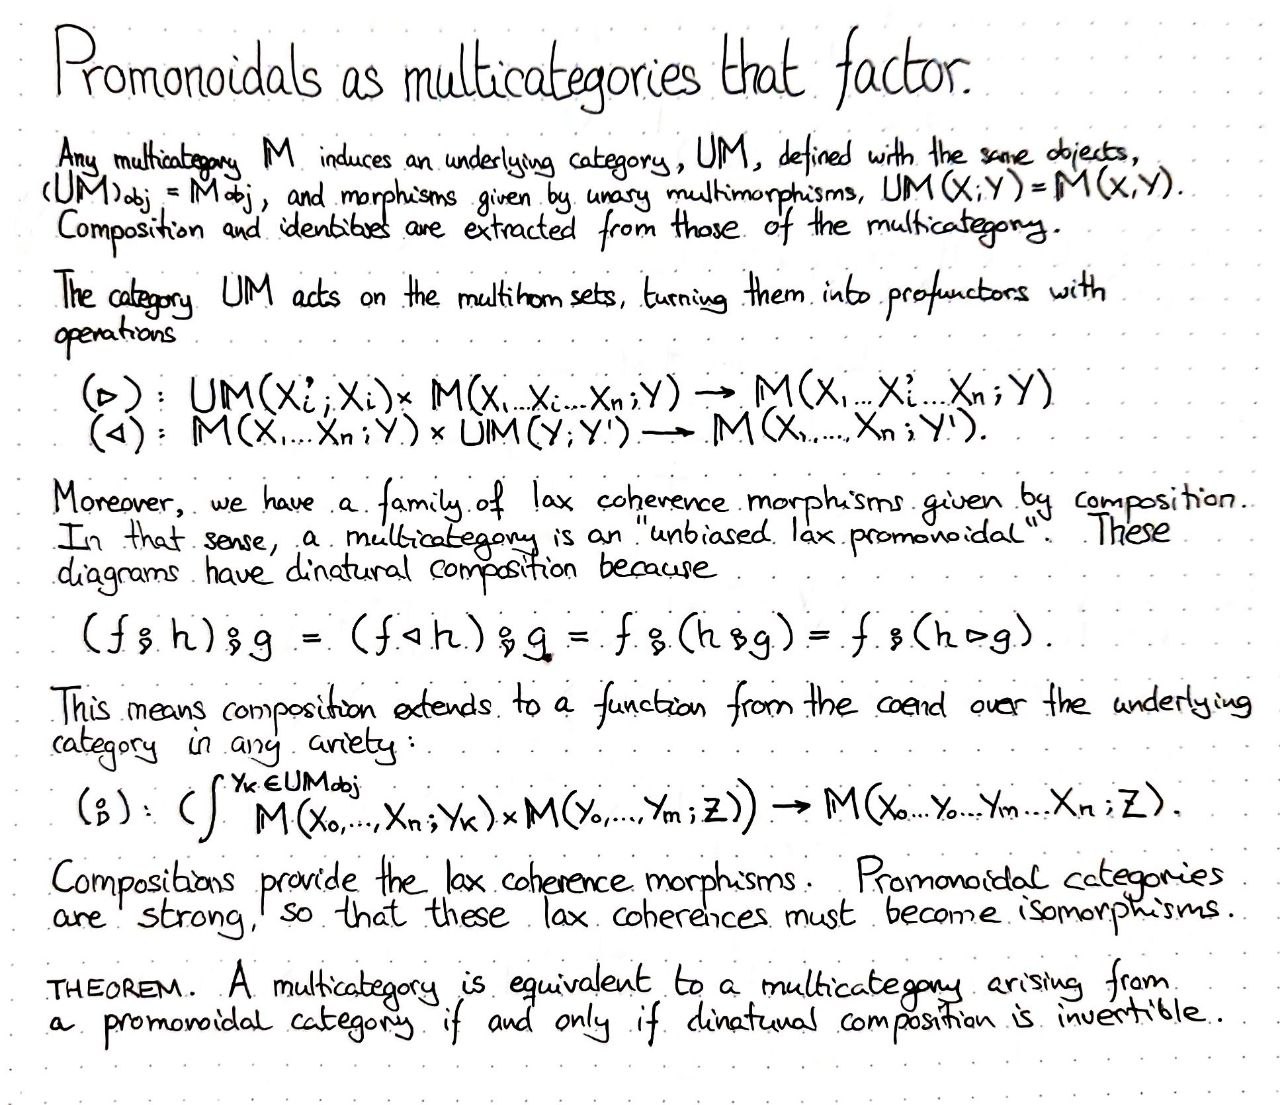 Promonoidals as multicategories that factor.
Any multicategory 𝕄 induces an underlying category, U𝕄, defined with the same objects,
(U𝕄)obj = 𝕄obj, and morphisms given by unary multimorphisms, U𝕄(X;Y) = 𝕄(X,Y).
Composition and identities are extracted from those of the multicategory.
The category U𝕄 acts on the multihom sets, turning them into profunctors with
operations
(▷) : U𝕄(Xᵢ';Xᵢ) × 𝕄(X₁...Xᵢ...Xₙ;Y) → 𝕄(X₁...Xᵢ'...Xₙ;Y)
(◁) : 𝕄(X₁...Xₙ;Y) × U𝕄(Y;Y') → 𝕄(X₁,...,Xₙ;Y').
Moreover, we have a family of lax coherence morphisms given by composition.
In that sense, a multicategory is an "unbiased lax promonoidal". These
diagrams have dinatural composition because
(f ⨾ h) ⨾ g = (f ◁ h) ⨾ g = f ⨾ (h ⨾ g) = f ⨾ (h ▷ g).
This means composition extends to a function from the coend over the underlying
category in any ariety:
(⨾): (∫^{Yₖ∈U𝕄obj} 𝕄(X₀,...,Xₙ;Yₖ) × 𝕄(Y₀,...,Yₘ;Z)) → 𝕄(X₀...Y₀...Yₘ...Xₙ;Z).
Compositions provide the lax coherence morphisms. Promonoidal categories
are strong, so that these lax coherences must become isomorphisms.
THEOREM. A multicategory is equivalent to a multicategory arising from
a promonoidal category if and only if dinatural composition is invertible.